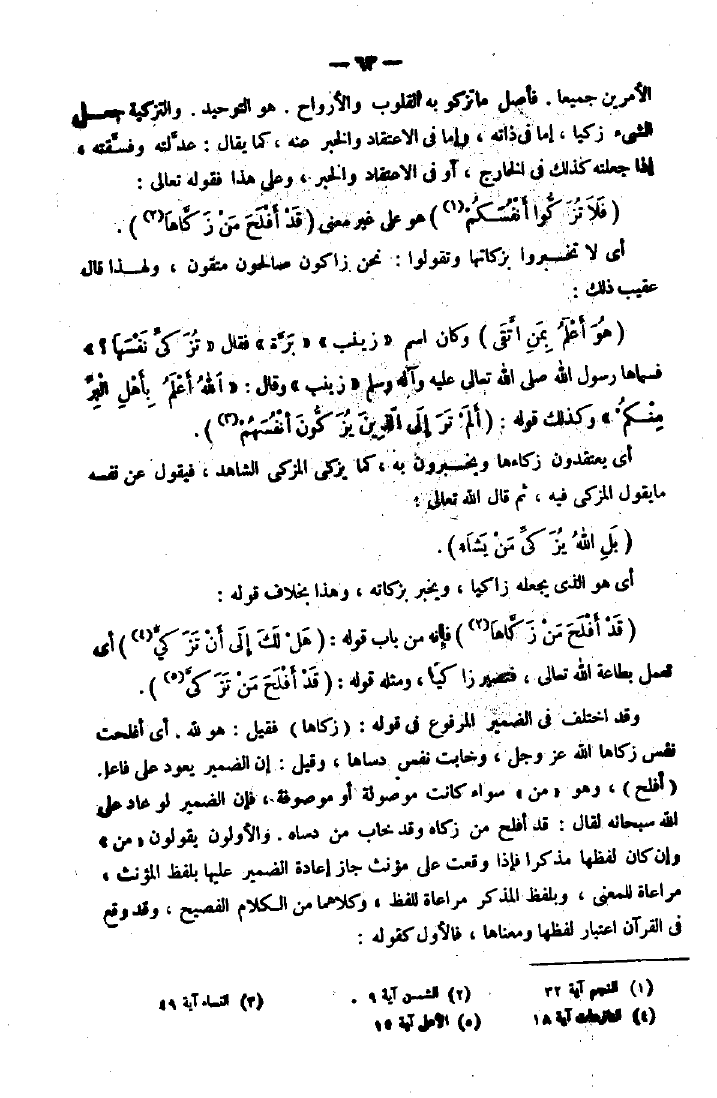 — ٦٣ —
الأمرين جميعا . فأصل ماتزكو به القلوب والأرواح . هو التوحيد . والتزكية جعل
الشىء زكيا ، إما فى ذاته ، وإما فى الاعتقاد والخبر عنه ، كما يقال : عدَّلته وفسَّقته »
إذا جعلته كذلك فى الخارج ، أو فى الاعتقاد والخبر ، وعلى هذا فقوله تعالى :
( فَلَا تُزَ كُّوا أَنْفُسَكُمْ (١) ) هو على غير معنى ( قَدْ أَفْلَحَ مَنْ زَ كَّاهَا (٢) ) .
أى لا تخبروا بزكاتها وتقولوا : نحن زاكون صالحون متقون ، ولهذا قال
عقيب ذلك :
( هُوَ أَعْلَمُ بِمَنِ اتَّقَى ) وكان اسم « زينب » « بَرَّة » فقال « تُزَ كىِّ نَفْسَهاَ ؟ »
فسماها رسول الله صلى الله تعالى عليه وآله وسلم « زينب » وقال : « اَللهُ أَعْلَمُ بِأَهْلِ الْبِرِّ
مِنْكمُ » وكذلك قوله : ( أَلَمْ تَرَ إِلَى الَّذِينَ يُزَ كُّونَ أَنْفُسَهُمْ (٣) ) .
أى يعتقدون زكاءها ويخبرون به ، كما يزكى المزكى الشاهد ، فيقول عن نفسه
مايقول المزكى فيه ، ثم قال الله تعالى :
( بَلِ اللهُ يُزَ كىِّ مَنْ يَشَاء ) .
أى هو الذى يجعله زاكيا ، ويخبر بزكاته ، وهذا بخلاف قوله :
( قَدْ أَفْلَحَ مَنْ زَ كَّاهَا (٢) ) فإنه من باب قوله : ( هَلْ لَكَ إِلَى أَنْ تَزَ كىَّ (٤) ) أى
تعمل بطاعة الله تعالى ، فتصير زا كيًا ، ومثله قوله : ( قَدْ أَفْلَحَ مَنْ تَزَ كىَّ (٥) ) .
وقد اختلف فى الضمير المرفوع فى قوله : ( زكاها ) فقيل : هو لله . أى أفلحت
نفس زكاها الله عز وجل ، وخابت نفس دساها ، وقيل : إن الضمير يعود على فاعل
( أفلح ) ، وهو « من » سواء كانت موصولة أو موصوفة ، فإن الضمير لو عاد على
الله سبحانه لقال : قد أفلح من زكاه وقد خاب من دساه . والأولون يقولون « من »
وإن كان لفظها مذكرا فإذا وقعت على مؤنث جاز إعادة الضمير عليها بلفظ المؤنث ،
مراعاة للمعنى ، وبلفظ المذكر مراعاة للفظ ، وكلاهما من الكلام الفصيح ، وقد وقع
فى القرآن اعتبار لفظها ومعناها ، فالأول كقوله :
(١) النجم آية ٣٢ (٢) الشمس آية ٩ . (٣) النساء آية ٤٩
(٤) النازعات آية ١٨ (٥) الأعلى آية ١٥